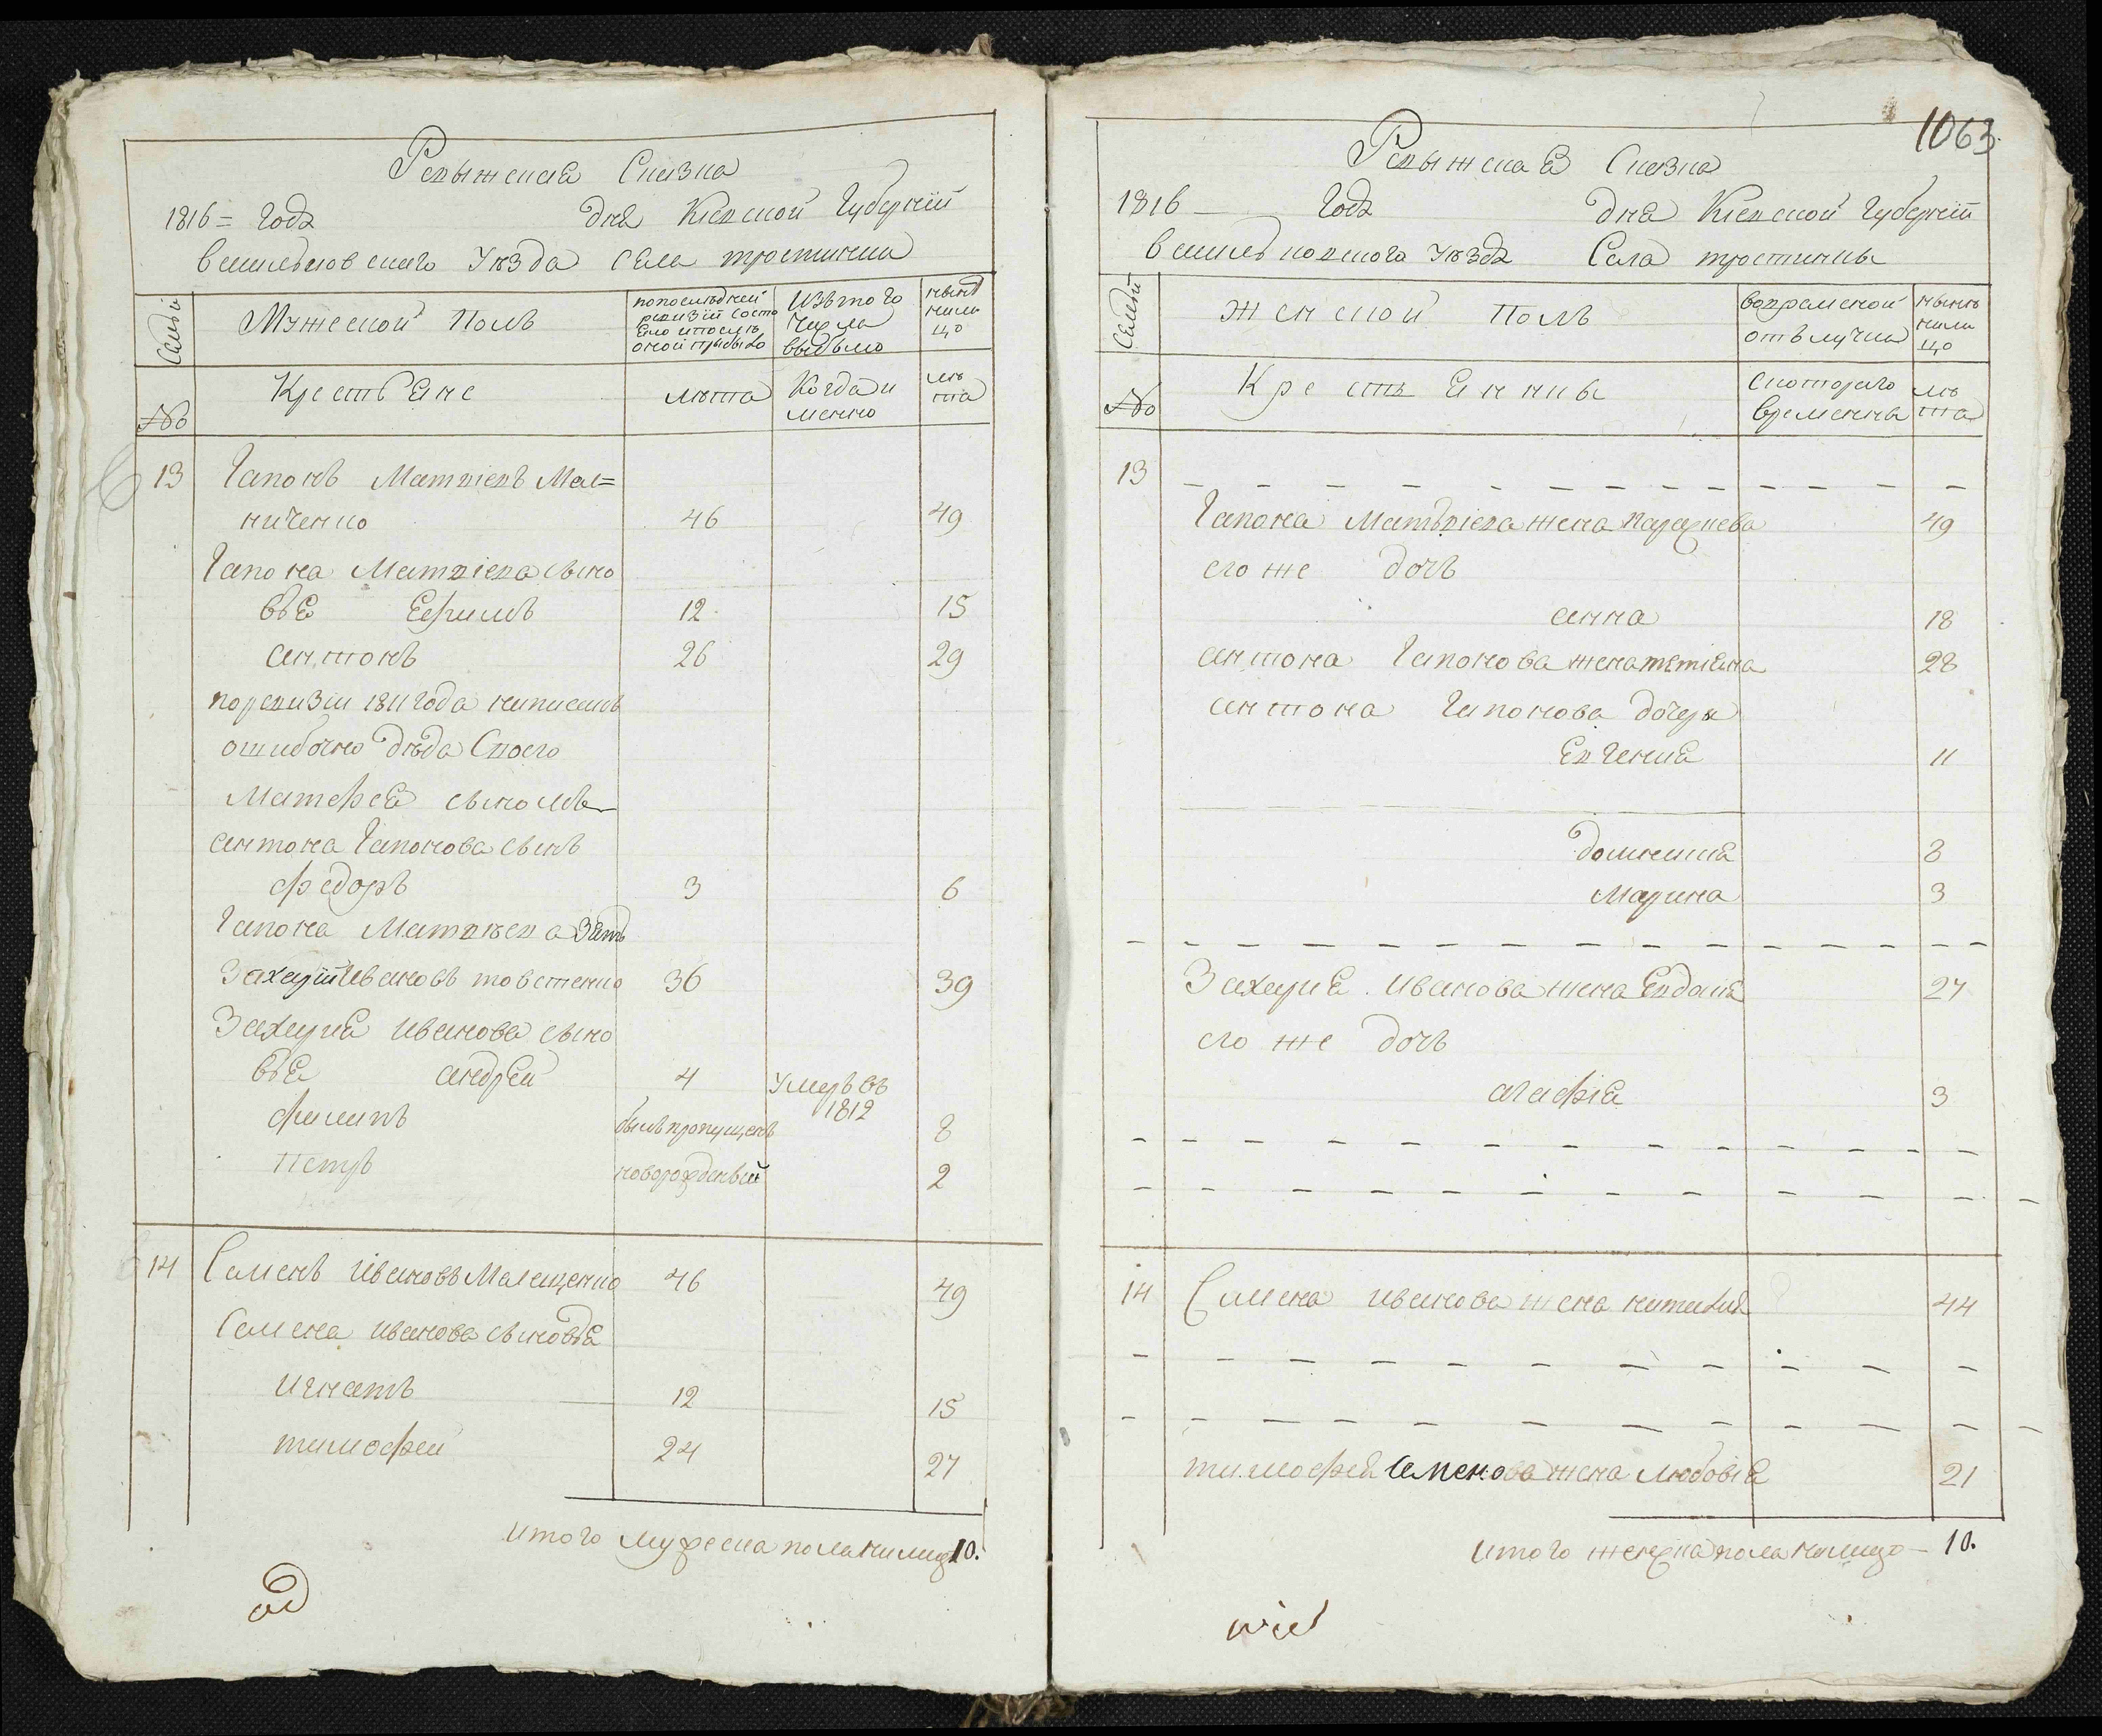 Ревыжская Сказка
1816= года дня Кіевской Губерніи
Васильковскаго Уѣзда села тростинки
Семьи
Мужеской Полъ
попоследней ревизіи состояло ипослѣ оной прибыло
Изътого числа выбыло
нынѣ налицо
№
Крестьяне
лѣта
Когда и менно
лѣта
13 Гапонъ Матвіевъ Мел=
ниченко 46 49
Гапона Матвіева сыно
вья Ефимъ 12 15
антонъ 26 29
поревизіи 1811 года написанъ
ошибочно дѣда Своего
Матефея сыномъ
антона Гапонова сынъ
федоръ 3 6
Гапона Матвѣева Зять
Захарій Ивановъ товстенко 36 39
Захарія Иванова сыно
вья андрей 4 умеръ въ 1812
филипъ былъ пропущенъ 8
Петръ новорожденый 2
14 Семенъ Ивановъ Малащенко 46 49
Семена Иванова сыновья
Игнатъ 12 15
тимофей 24 27
итого мужеска пола налицо 10.
1063.
Ревыжская Сказка
1816 — Года дня Кіевской Губерніи
Васильковскога Уѣзда Села тростинки
Семьи
Женской Полъ
вовременой отълучки
нынѣ налицо
№
Крестьянки
скотораго времени
лѣта
13
Гапона Матьвіева жена Параскева 49
его же дочь
анна 18
антона Гапонова жена татіяна 28
антона Гапонова дочери
Евгения 11
домникия 8
Марина 3
Захария Иванова жена Евдокия 27
его же дочь
агафія 3
14 Симена Иванова жена наталия 44
тимофея Семенова жена Любовія 21
итого женска пола налицо — 10.